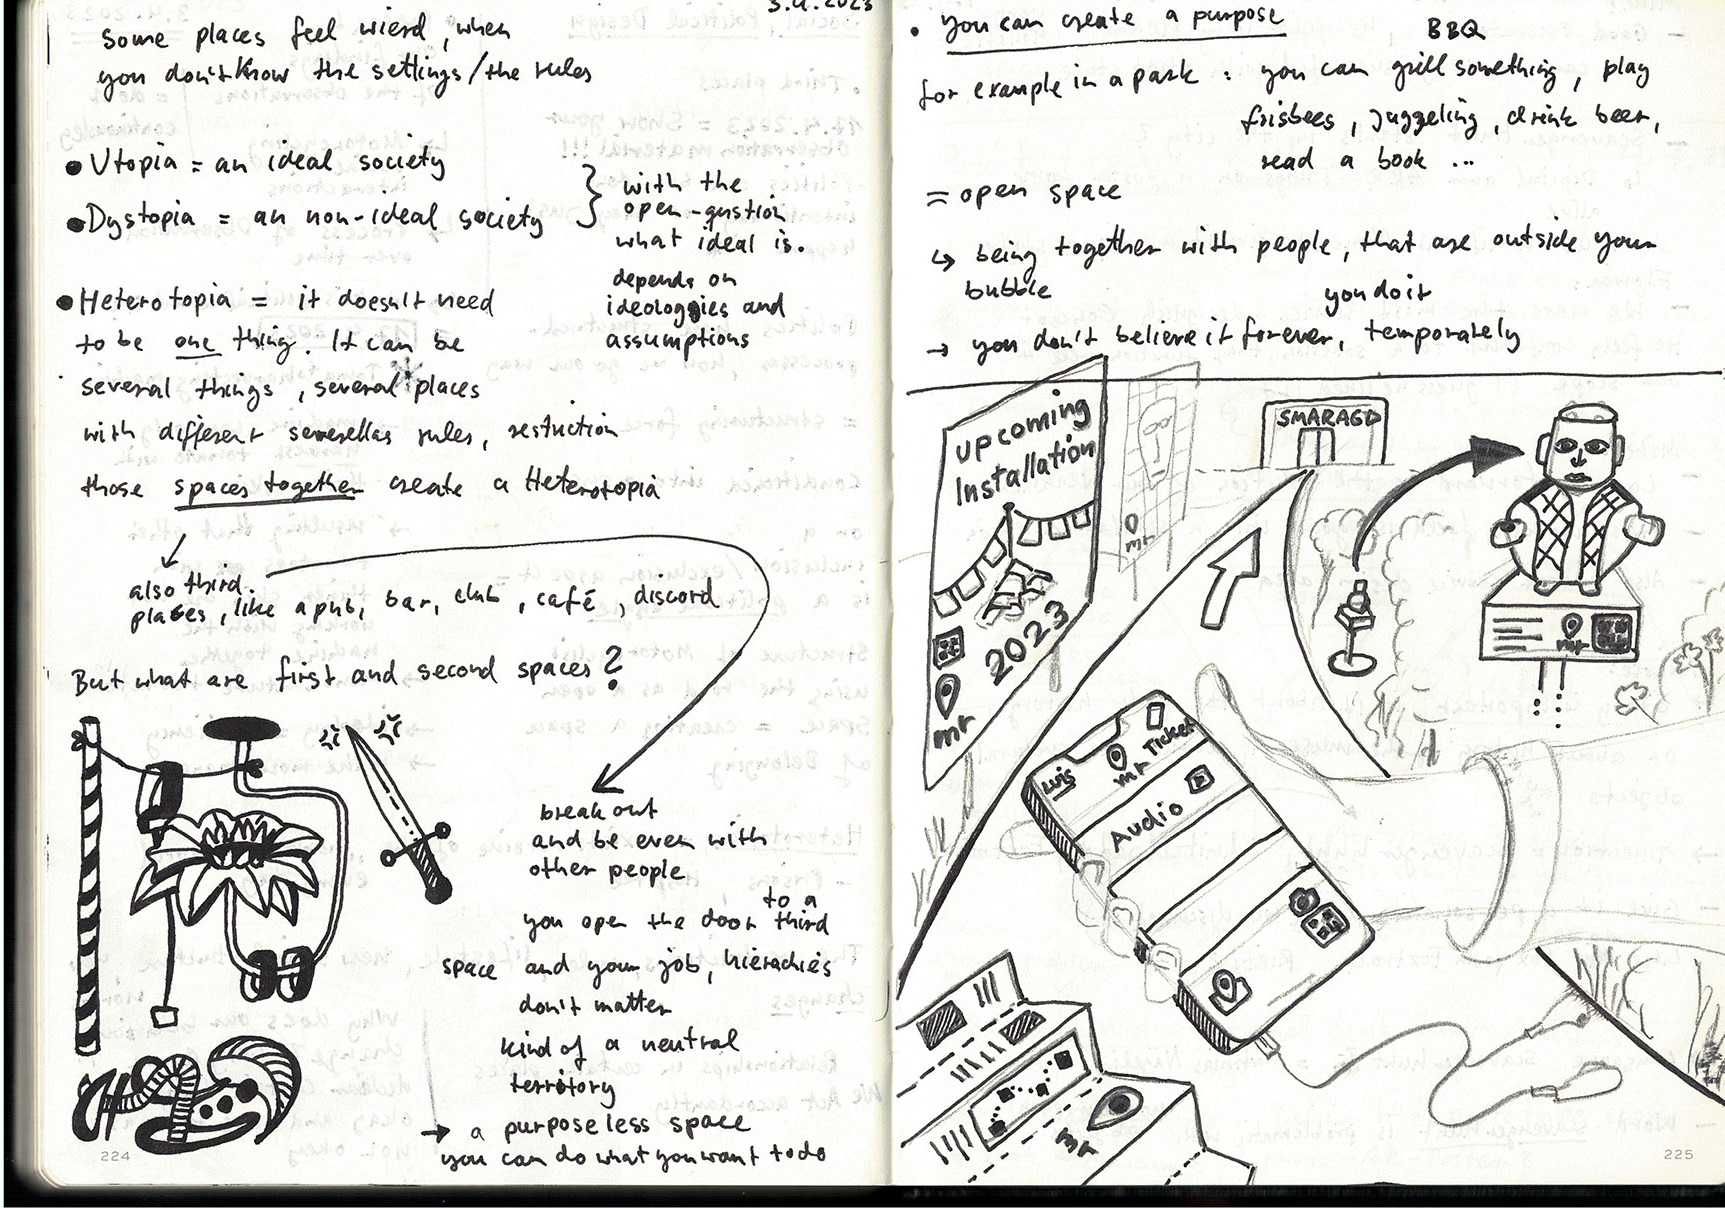 3.4.2023
Some places feel wierd, when
you don't know the settings/the rules
• Utopia = an ideal society
• Dystopia = an non-ideal society
} with the
open-qustion
what ideal is.
depends on
ideologies and
assumptions
• Heterotopia = it doesn't need
to be one thing. It can be
several things, several places
with different rules, restriction
those spaces together create a Heterotopia
also third
places, like a pub, bar, club, café, discord
But what are first and second spaces?
break out
and be even with
other people
you open the door to a third
space and your job, hierachies
don't matter
kind of a neutral
territory
→ a purposeless space
you can do what you want to do
224
• you can create a purpose
for example in a park : you can grill something, play
BBQ
frisbees, juggeling, drink beer,
read a book ...
= open space
↳ being together with people, that are outside your
bubble
you do it
→ you don't believe it forever, temporately
upcoming
Installation
2023
mr
mr
SMARAGD
mr
Luis
mr
Ticket
Audio
mr
225